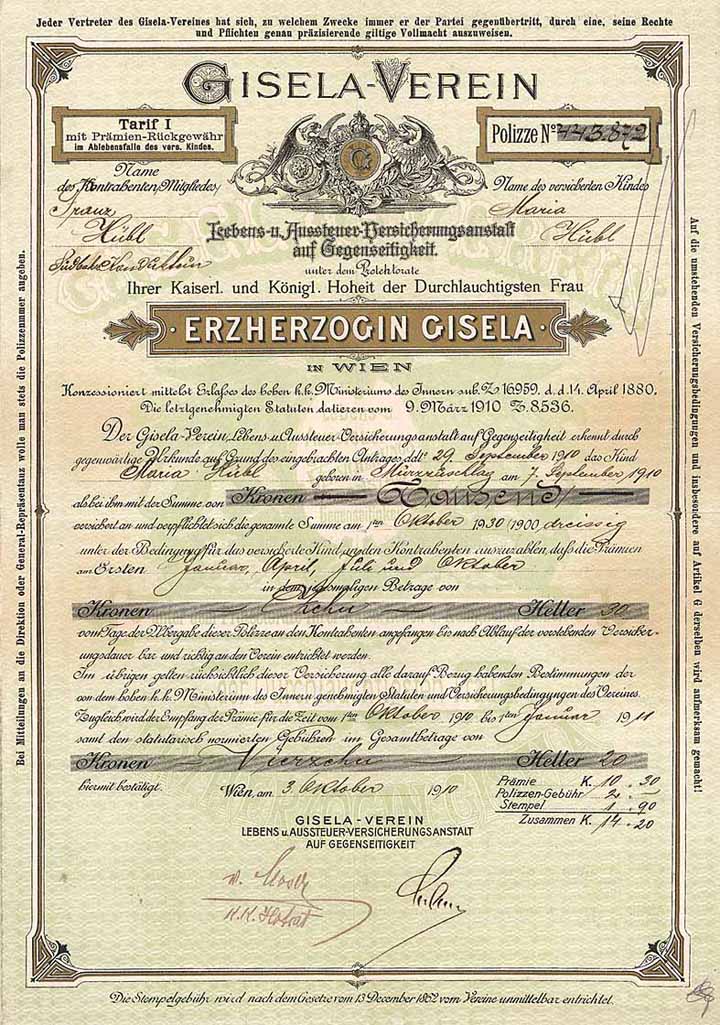 Jeder Vertreter des Gisela-Vereines hat sich, zu welchem Zwecke immer er der Partei gegenübertritt, durch eine, seine Rechte
und Pflichten genau präzisierende giltige Vollmacht auszuweisen.
GISELA-VEREIN
Tarif I
mit Prämien-Rückgewähr
im Ablebensfalle des vers. Kindes.
Polizze No 443.872
Name
des Kontrahenten/Mitgliedes/
Franz
Hübl
Name des versicherten Kindes
Maria
Hübl
Lebens- u. Aussteuer-Versicherungsanstalt
auf Gegenseitigkeit.
unter dem Protektorate
Ihrer Kaiserl. und Königl. Hoheit der Durchlauchtigsten Frau
ERZHERZOGIN GISELA
IN WIEN
Konzessioniert mittelst Erlaßes des hohen k.k. Ministeriums des Innern sub. Z 16959. d. d. 14. April 1880.
Die letztgenehmigten Statuten datieren vom 9. März 1910 Z. 8536.
Der Gisela-Verein, Lebens u. Aussteuer-Versicherungsanstalt auf Gegenseitigkeit erkennt durch
gegenwärtige Urkunde auf Grund des eingebrachten Antrages ddt° 29 September 1910 das Kind
Maria Hübl geboren in Mürzzuschlag am 7. September 1910
als bei ihm mit der Summe von Kronen Tausend
versichert an und verpflichtet sich die genannte Summe am 1ten Oktober 1930/1900 dreissig
unter der Bedingung für das versicherte Kind an den Kontrahenten auszuzahlen, daß die Prämien
am Ersten Januar, April, Juli und Oktober
in dem jedesmaligen Betrage von
Kronen Zehn Heller 30
vom Tage der Übergabe dieser Polizze an den Kontrahenten angefangen bis nach Ablauf der vorstehenden Versicher-
ungsdauer bar und richtig an den Verein entrichtet werden.
Im übrigen gelten rücksichtlich dieser Versicherung alle darauf Bezug habenden Bestimmungen der
von dem hohen k.k. Ministerium des Innern genehmigten Statuten und Versicherungsbedingungen des Vereines.
Zugleich wird der Empfang der Prämie für die Zeit vom 1ten Oktober 1910 bis 1ten Januar 1911
samt den statutarisch normierten Gebühren im Gesamtbetrage von
Kronen Vierzehn Heller 20
hiermit bestätigt. Wien, am 3. Oktober 1910
Prämie K. 10.30
Polizzen-Gebühr 2.—
Stempel 1.90
Zusammen K. 14.20
GISELA-VEREIN
LEBENS u. AUSSTEUER-VERSICHERUNGSANSTALT
AUF GEGENSEITIGKEIT
K.K. Hofrat
Die Stempelgebühr wird nach dem Gesetze vom 13 December 1862 vom Vereine unmittelbar entrichtet.
Bei Mitteilungen an die Direktion oder General-Repräsentanz wolle man stets die Polizzennummer angeben.
Auf die umstehenden Versicherungsbedingungen und insbesondere auf Artikel G derselben wird aufmerksam gemacht!